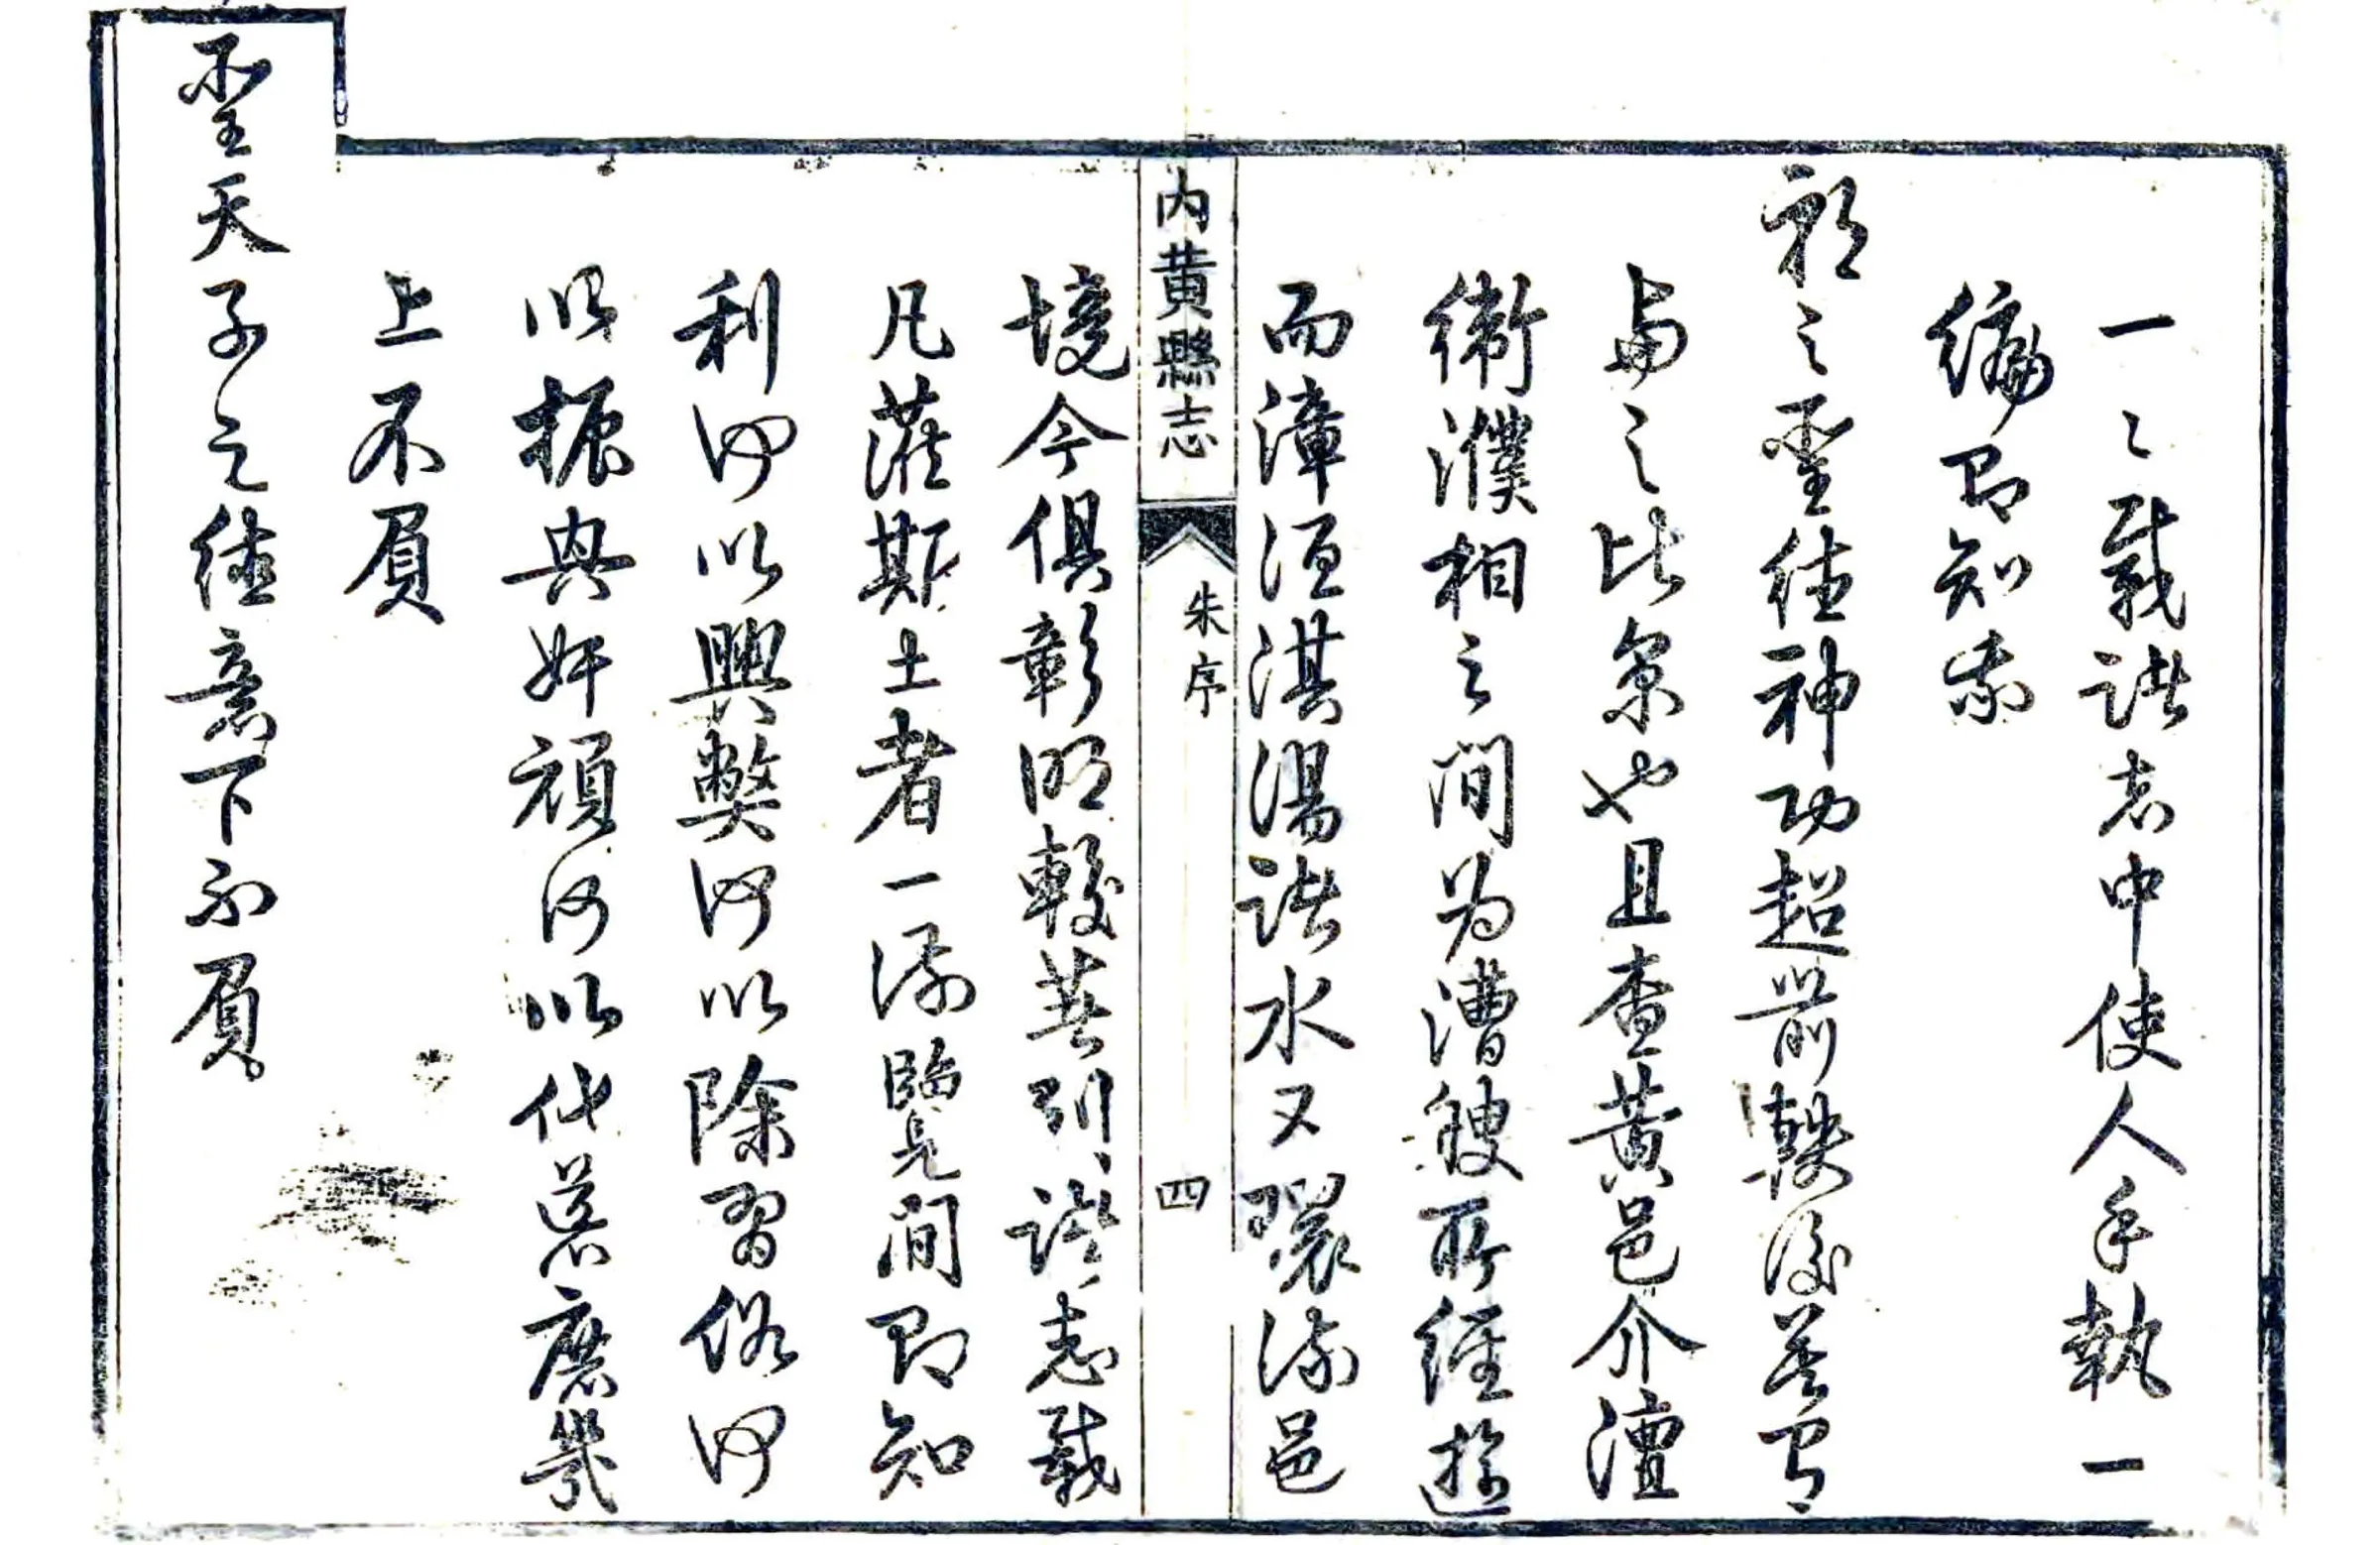 一〻載諸志中使人手執一
編即知我
朝之聖德神功超前軼後莫有
與之比京也且查黃邑介澶
衛濮相之間為漕艘所經遊
而漳洹淇湯諸水又環流邑
內黃縣志 朱序 四
境今俱彰明較著列諸志載
凡蒞斯土者一流覽間即知
利何以興弊何以除習俗何
以振興奸頑何以化庶幾
上不負
聖天子之德意下不負